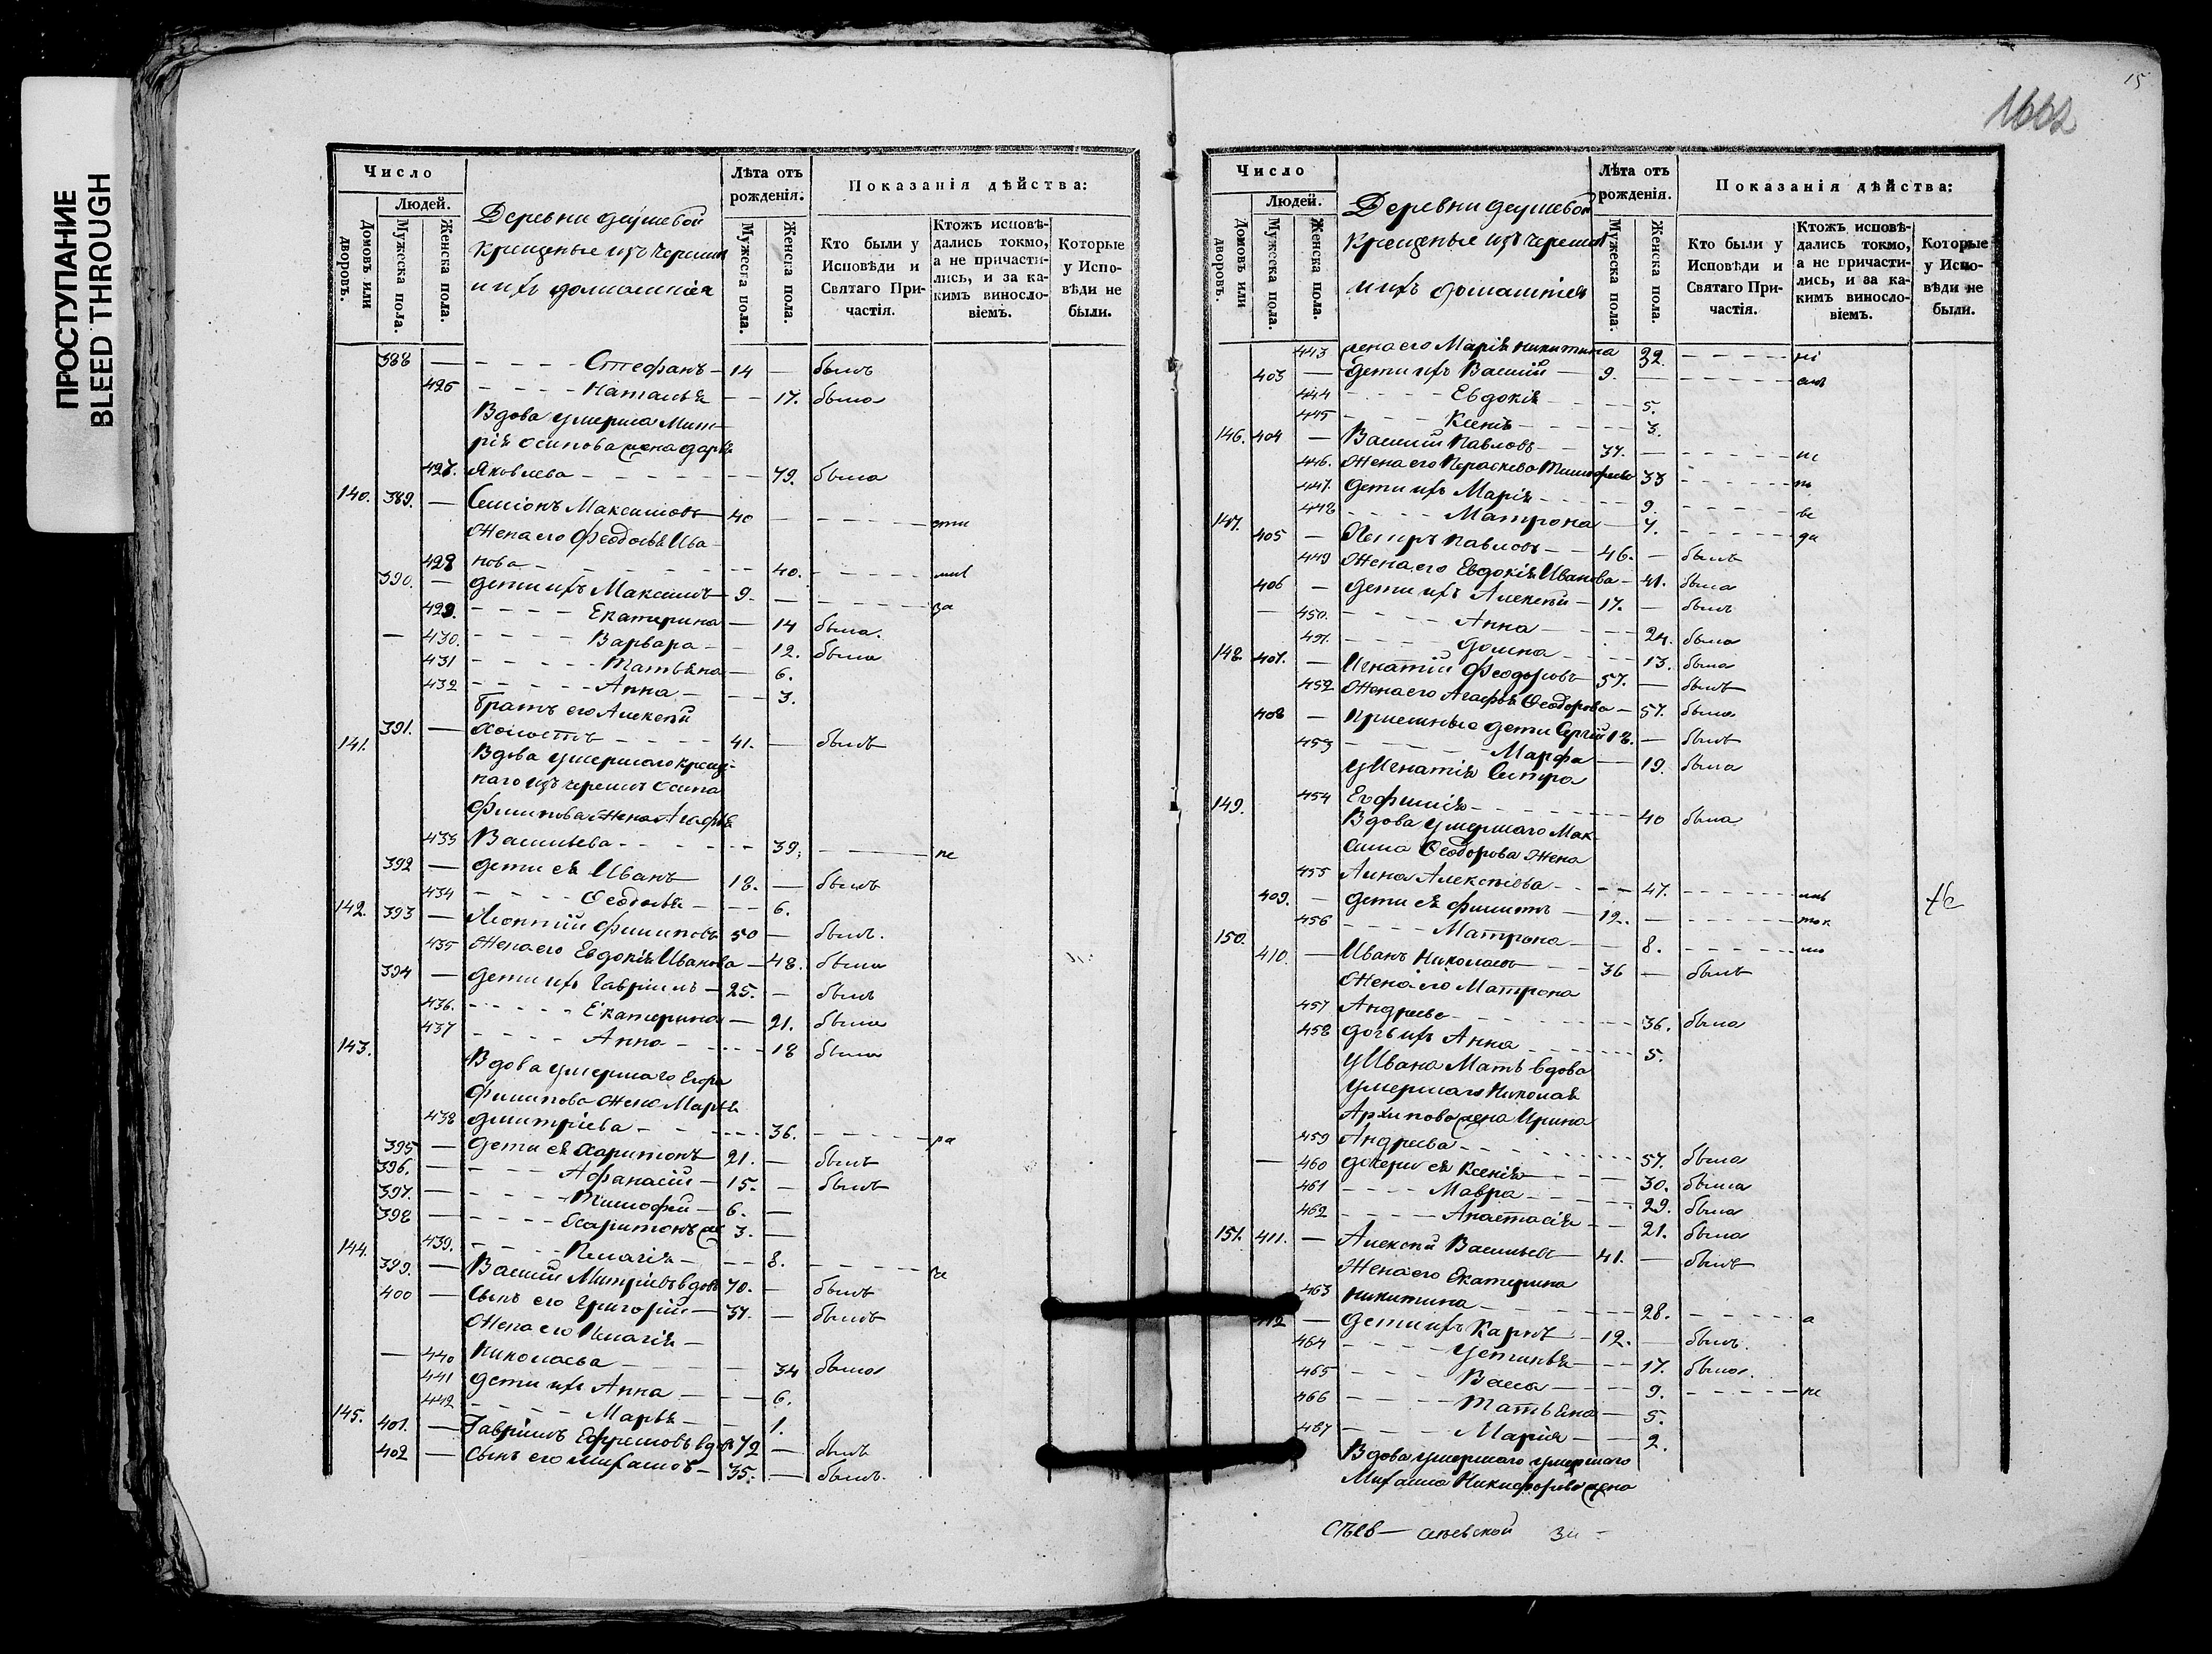 ПРОСТУПАНИЕ
BLEED THROUGH
Число
Людей.
Домовъ или дворовъ.
Мужеска пола.
Женска пола.
Деревни
крещеные изъ черемис
и ихъ домашнія
Лѣта отъ рожденія.
Мужеска пола.
Женска пола.
Показанія дѣйства:
Кто были у Исповѣди и Святаго Причастія.
Ктожъ исповѣдались токмо, а не причастились, и за какимъ винословіемъ.
Которые у Исповѣди не были.
388 — Стефанъ — 14 — былъ
426 Наталья — 17. была
Вдова умерша Мит-
рія Осипова жена Дарья
427. Яковлева — 79. была
140. 389. — Семіонъ Максимовъ 40
Жена его Феодосья Ива-
428 нова — 40.
390. — Дети ихъ Максимъ — 9. — за
429. Екатерина — 14 была.
— 430. Варвара — 12. была
431 Татьяна — 6.
432 Анна — 3.
Братъ его Алексѣй
391. — холостъ 41. — былъ
141. Вдова умершаго креще-
наго изъ черемис Осипа
Филипова жена Агафья
433 Васильева — 39. — не
392 — Дети ея Иванъ 18. — былъ
434 Ѳеодосья — 6.
142. 393 — Леонтій Филиповъ 50 — былъ.
435 Жена его Евдокія Иванова — 48. была
394 — Дети ихъ Гавріилъ — 25. — былъ
436. Екатерина — 21. была
437 Анна — 18 была
143. Вдова умершаго Егора
Филипова жена Марья
438 Дмитріева — 36. — ра
395 — Дети ея Харитонъ 21. — былъ
396. — Афанасій — 15. — былъ
397. — Тимофей — 6. —
398 — Харитонъ 3. —
439. Пелагія — 8.
144. 399. — Василій Митріевъ вдовъ 70. — былъ
400 — Сынъ его Григорій — 37. — былъ
Жена его Пелагія —
— 440 Николаева — 34 была
441 Дети ихъ Анна — 6.
442 Марья — 1.
145. 401. — Гавріилъ Ефремовъ вдовъ 72 — былъ
402 — Сынъ его Михаилъ — 35. — былъ.
15
1662
Число
Людей.
Домовъ или дворовъ.
Мужеска пола.
Женска пола.
Деревни
крещеные изъ черемис
и ихъ домашнія
Лѣта отъ рожденія.
Мужеска пола.
Женска пола.
Показанія дѣйства:
Кто были у Исповѣди и Святаго Причастія.
Ктожъ исповѣдались токмо, а не причастились, и за какимъ винословіемъ.
Которые у Исповѣди не были.
443 жена его Марія Никитина 32.
403 — Дети ихъ Василій — 9.
444 Евдокія 5.
445 Ксенія 3.
146. 404 — Василій Павловъ — 37.
446. Жена его Параскева Тимофеева 33
447. Дети ихъ Марія 9.
448 Матрона — 7.
147. 405 — Петръ Павловъ — 46. — былъ
449 Жена его Евдокія Иванова — 41. была
406 — Дети ихъ Алексѣй — 17. — былъ
— 450. Анна 24. была
451. Домна 13. была
148. 407. — Игнатій Феодоровъ — 57. — былъ
452 Жена его Агафья Ѳеодорова — 57. была
408 — Приемные дети Сергій 18. — былъ
453 Марфа — 19. была
У Игнатія Сестра
454 Евфимія 40 была
149. Вдова умершаго Мак-
сима Ѳеодорова жена
455 Анна Алексѣева 47.
409. — Дети ея Филипъ — 12. — ток
456 Матрона — 8. — мо
150. 410. — Иванъ Николаевъ 36 — былъ
Жена его Матрона
457 Андреева 36. была
458 Дочь ихъ Анна 5.
У Ивана Мать вдова
умершаго Николая
Архипова жена Ирина
459 Андреева 57. была
— 460 Дочери ея Ксенія — 30. была
461 Мавра 29. была
462 Анастасія 21. была
151. 411. — Алексѣй Васильевъ — 41. — былъ
Жена его Екатерина
463 Никитина 28. — а
412 — Дети ихъ Карпъ — 12. — былъ.
464 Устинья 17. была.
465 Васса 9. — не
466 Татьяна — 5.
467 Марія — 2.
Вдова умершаго умершаго
Михаила Никифорова жена